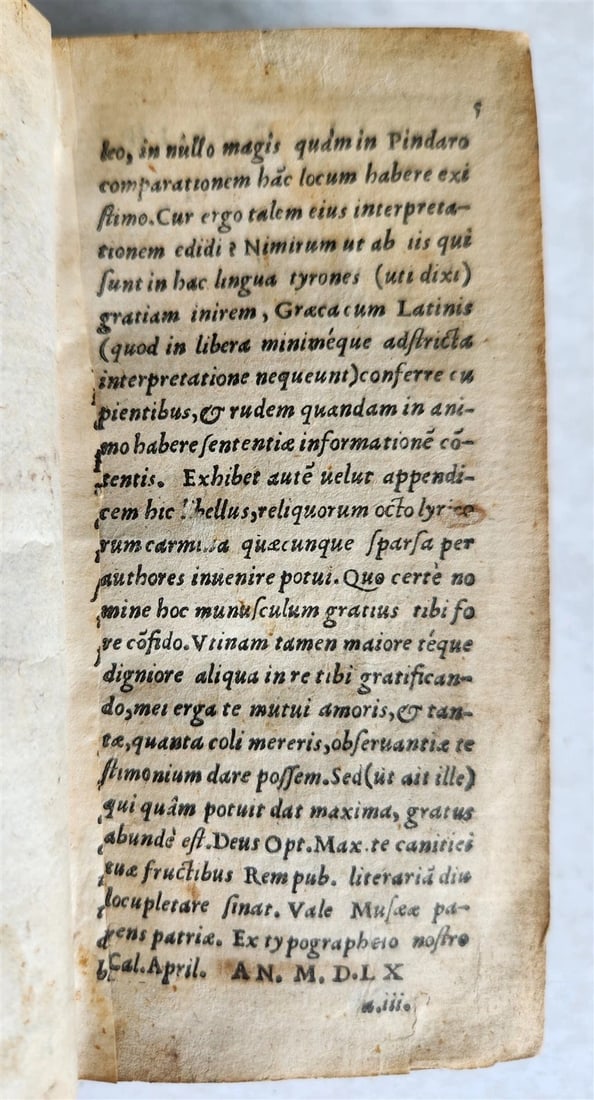 5
leo, in nullo magis quàm in Pindaro
comparationem hãc locum habere exi
ſtimo. Cur ergo talem eius interpreta-
tionem edidi? Nimirum ut ab iis qui
ſunt in hac lingua tyrones (uti dixi)
gratiam inirem, Græca cum Latinis
(quod in libera miniméque adſtricta
interpretatione nequeunt) conferre cu
pientibus, & rudem quandam in ani-
mo habere ſententiæ informationẽ cõ-
tentis. Exhibet autẽ uelut appendi-
cem hic libellus, reliquorum octo lyrico
rum carmina quæcunque ſparſa per
authores inuenire potui. Quo certè no
mine hoc munuſculum gratius tibi fo
re cõfido. Vtinam tamen maiore téque
digniore aliqua in re tibi gratifican-
do, mei erga te mutui amoris, & tan-
tæ, quanta coli mereris, obſeruantiæ te
ſtimonium dare poſſem. Sed (ut ait ille)
qui quàm potuit dat maxima, gratus
abundè eſt. Deus Opt. Max. te canitiei
tuæ fructibus Rempub. literariã diu
locupletare ſinat. Vale Muſææ pa-
rens patriæ. Ex typographeio noſtro
Cal. April. AN. M. D. LX
a.iii.